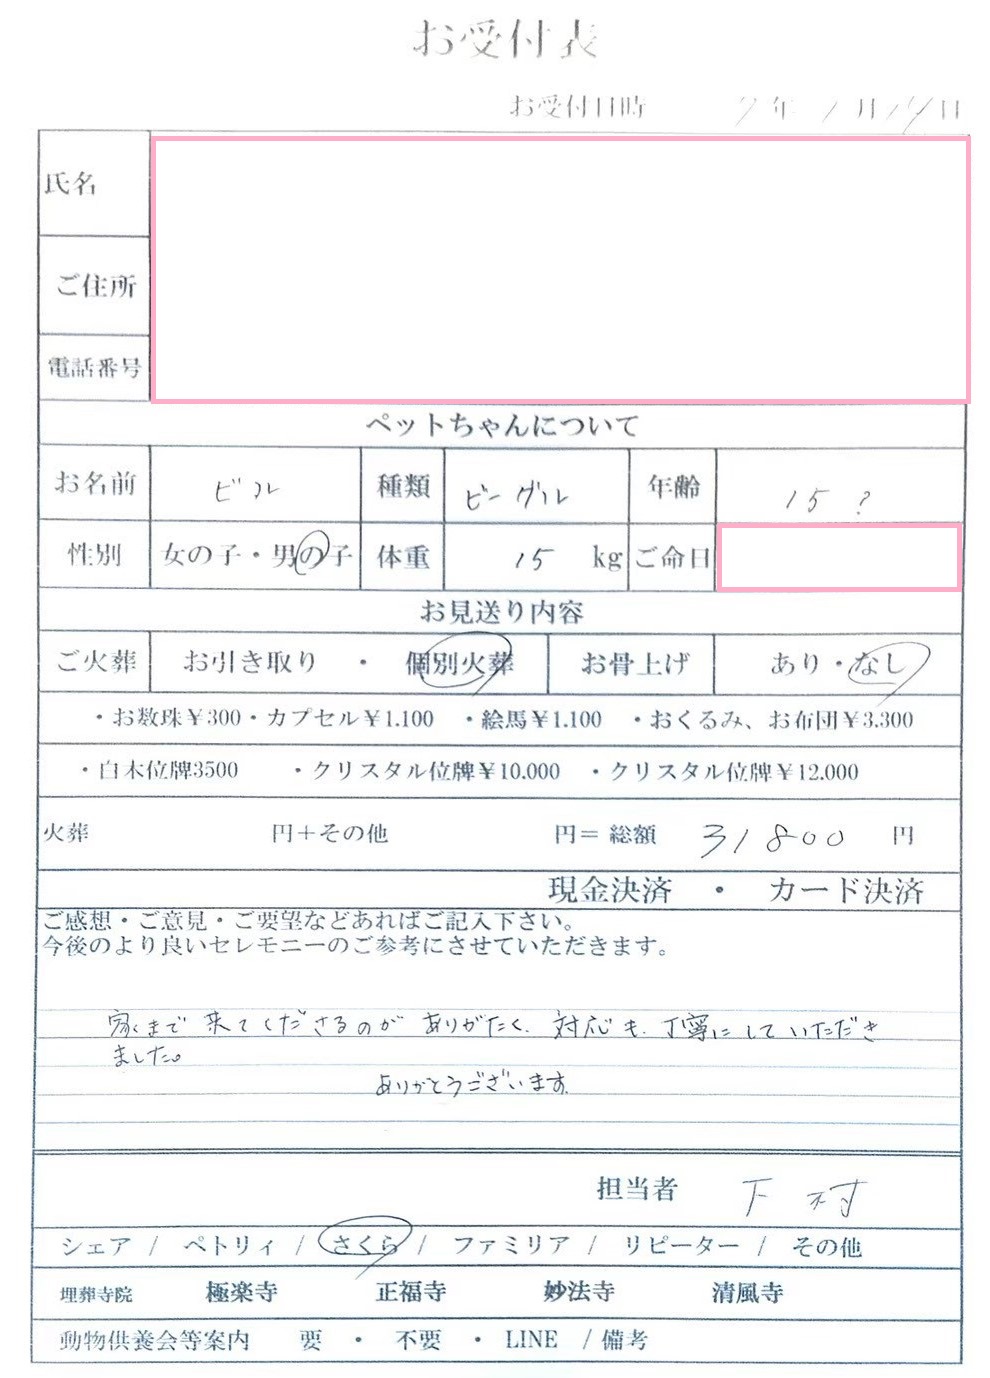 お受付表
お受付日時 7年 1月14日
氏名
ご住所
電話番号
ペットちゃんについて
お名前 ビル 種類 ビーグル 年齢 15?
性別 女の子・男の子 体重 15 kg ご命日
お見送り内容
ご火葬 お引き取り ・ 個別火葬 お骨上げ あり・なし
・お数珠¥300・カプセル¥1.100 ・絵馬¥1.100 ・おくるみ、お布団¥3.300
・白木位牌3500 ・クリスタル位牌¥10.000 ・クリスタル位牌¥12.000
火葬 円+その他 円= 総額 31800 円
現金決済 ・ カード決済
ご感想・ご意見・ご要望などあればご記入下さい。
今後のより良いセレモニーのご参考にさせていただきます。
家まで来てくださるのがありがたく、対応も丁寧にしていただき
ました。
ありがとうございます。
担当者 下村
シェア / ペトリィ / さくら / ファミリア / リピーター / その他
埋葬寺院 極楽寺 正福寺 妙法寺 清風寺
動物供養会等案内 要 ・ 不要 ・ LINE / 備考